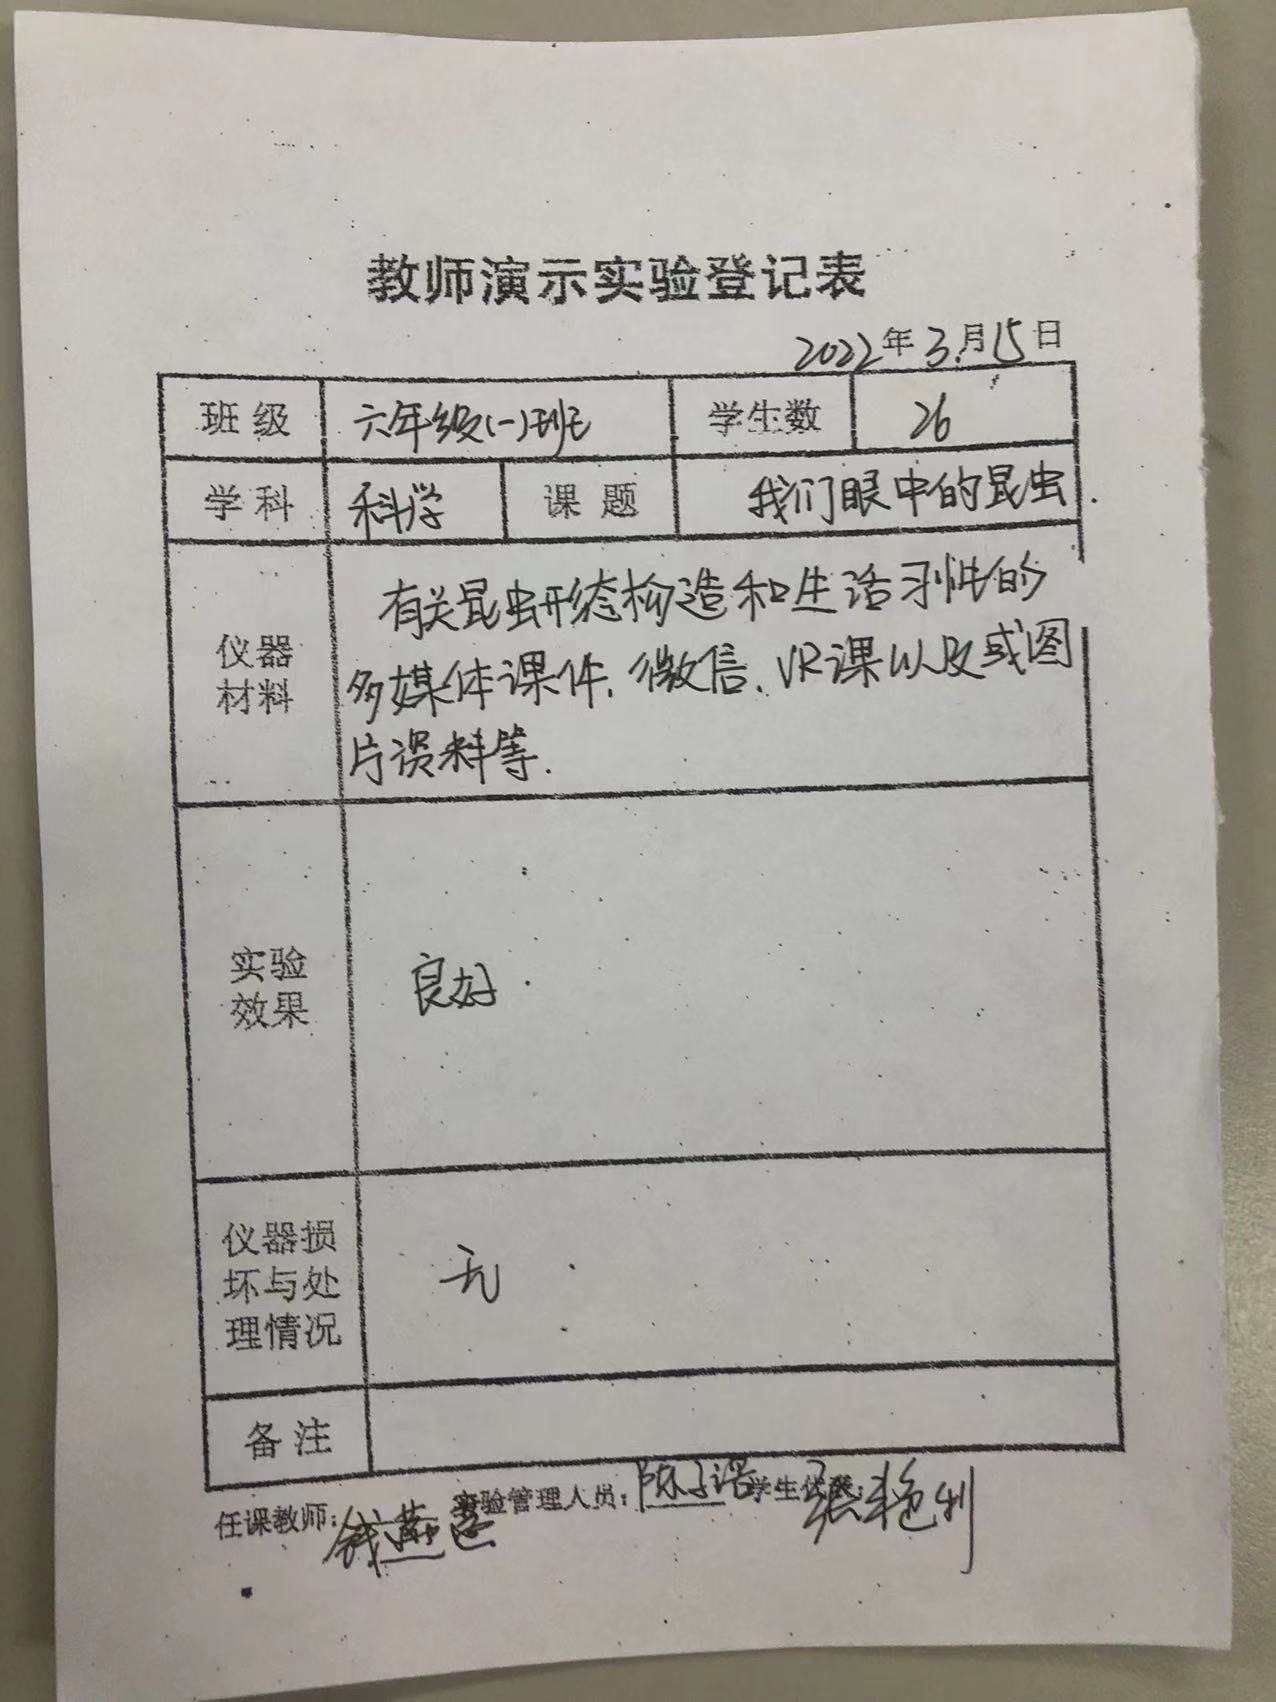 教师演示实验登记表
2022年3月15日
班级 六年级(一)班 学生数 26
学科 科学 课题 我们眼中的昆虫.
仪器
材料
有关昆虫形态构造和生活习性的
多媒体课件、微信、VR课以及或图
片资料等.
实验
效果
良好.
仪器损
坏与处
理情况
无.
备注
任课教师: 钱燕 实验管理人员: 陈子诺 学生代表: 张艳利